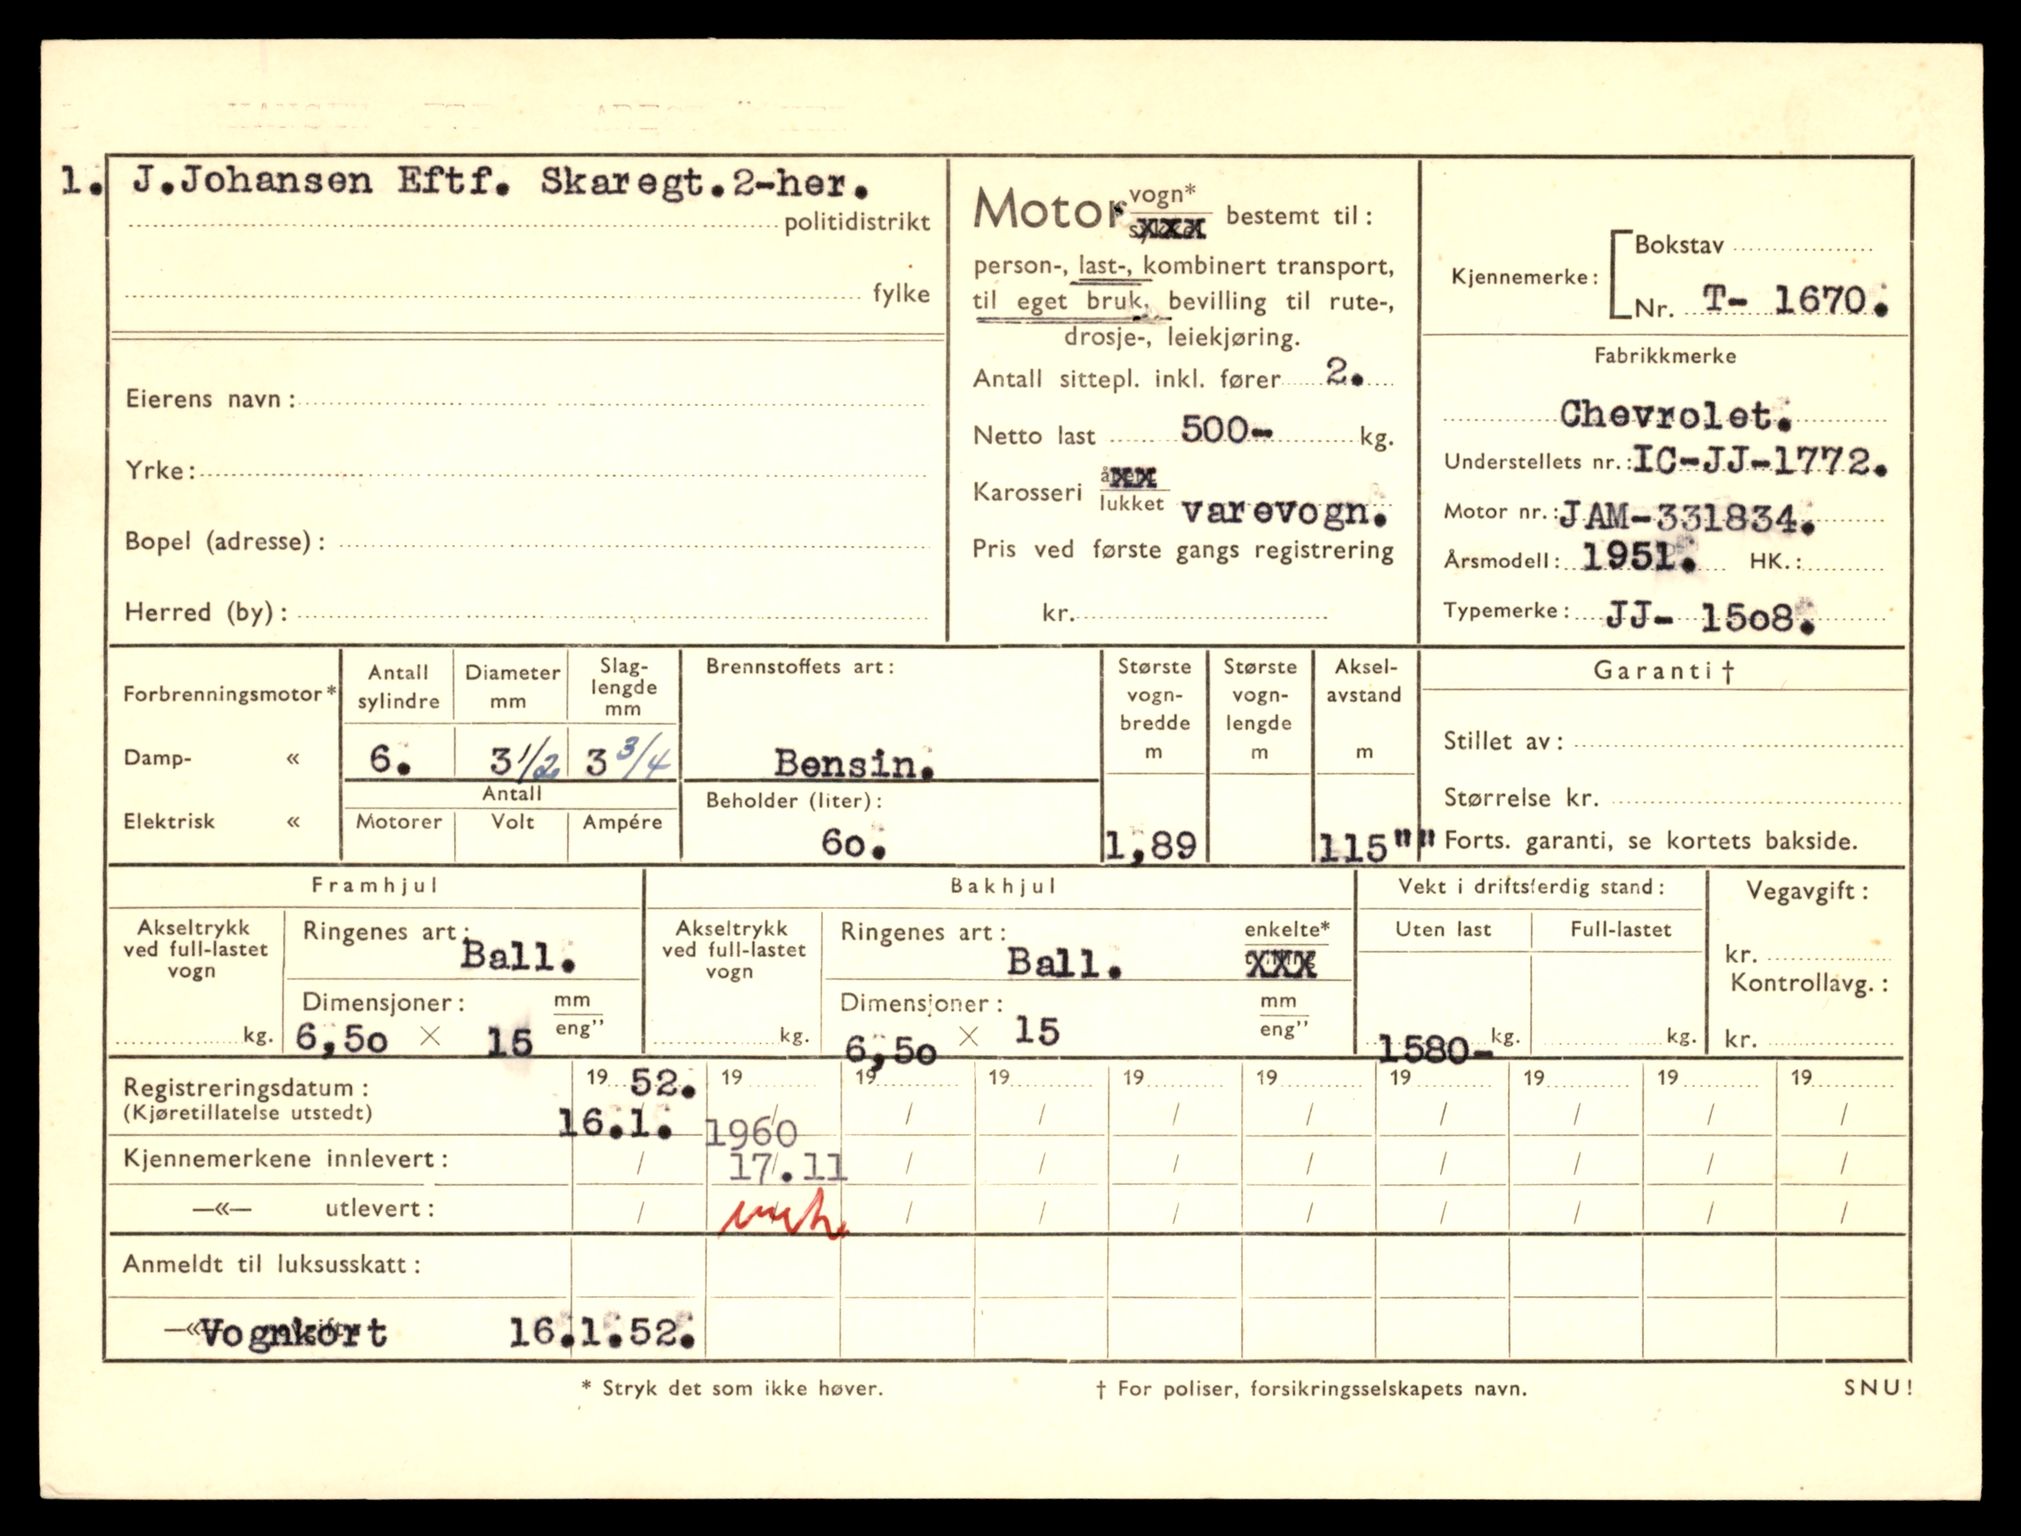 1. J.Johansen Eftf. Skaregt.2-her.
politidistrikt
fylke
Eierens navn:
Yrke:
Bopel (adresse):
Herred (by):
Motor vogn* bestemt til:
person-, last-, kombinert transport,
til eget bruk, bevilling til rute-,
drosje-, leiekjøring.
Antall sittepl. inkl. fører 2.
Netto last 500- kg.
Karosseri lukket varevogn.
Pris ved første gangs registrering
kr.
Kjennemerke: Bokstav
Nr. T- 1670.
Fabrikkmerke
Chevrolet.
Understellets nr.: IC-JJ-1772.
Motor nr.: JAM-331834.
Årsmodell: 1951. HK.:
Typemerke: JJ- 15o8.
Forbrenningsmotor*
Damp- «
Elektrisk «
Antall sylindre
6.
Diameter mm
3 1/2
Slag-
lengde
mm
3 3/4
Antall
Motorer Volt Ampére
Brennstoffets art:
Bensin.
Beholder (liter):
6o.
Største
vogn-
bredde
m
1,89
Største
vogn-
lengde
m
Aksel-
avstand
m
115""
Garanti †
Stillet av:
Størrelse kr.
Forts. garanti, se kortets bakside.
Framhjul
Akseltrykk
ved full-lastet
vogn
kg.
Ringenes art:
Ball.
Dimensjoner: mm
eng”
6,5o × 15
Bakhjul
Akseltrykk
ved full-lastet
vogn
kg.
Ringenes art: enkelte*
Ball. XXX
Dimensjoner: mm
eng”
6,5o × 15
Vekt i driftsferdig stand:
Uten last Full-lastet
1580- kg. kg.
Vegavgift:
kr.
Kontrollavg.:
kr.
Registreringsdatum: 19 52. 19 19 19 19 19 19 19 19 19
(Kjøretillatelse utstedt) 16.1. 1960 / / / / / / / /
Kjennemerkene innlevert: / 17.11 / / / / / / / /
—«— utlevert: / / / / / / / / /
Anmeldt til luksusskatt:
—«— Vognkort 16.1.52.
* Stryk det som ikke høver.
† For poliser, forsikringsselskapets navn.
SNU!